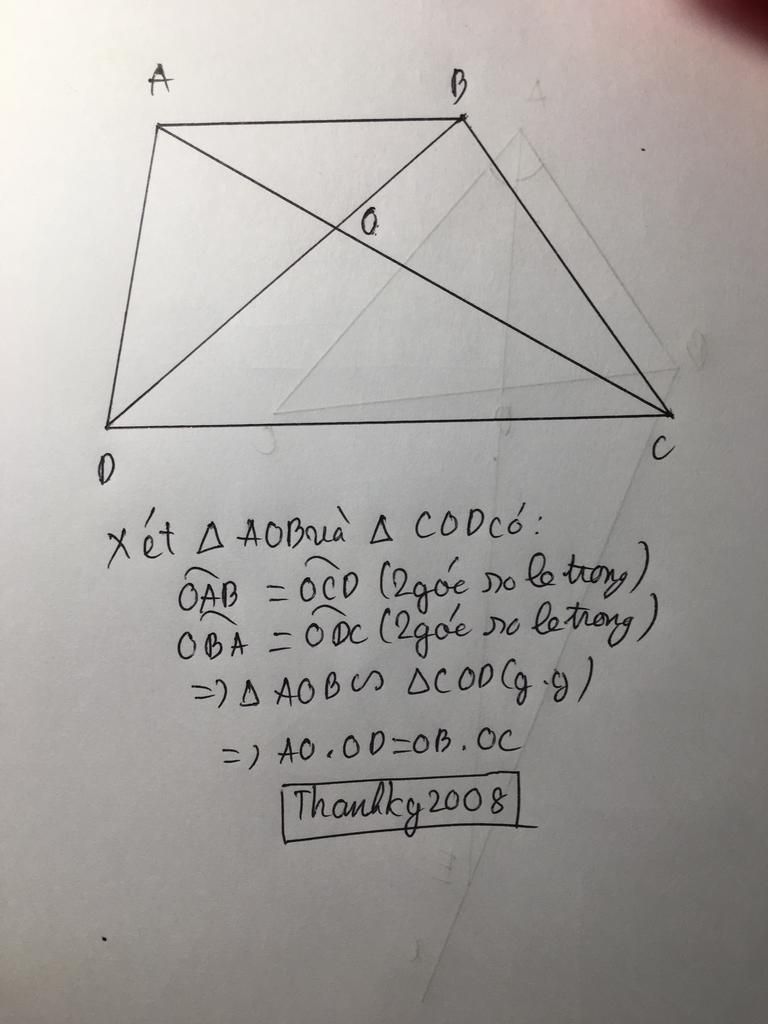 A
B
O
D
C
Xét Δ AOB và Δ COD có:
OAB = OCD (2 góc so le trong)
OBA = ODC (2 góc so le trong)
=> Δ AOB ∽ Δ COD (g.g)
=> AO.OD=OB.OC
Thanhkg2008